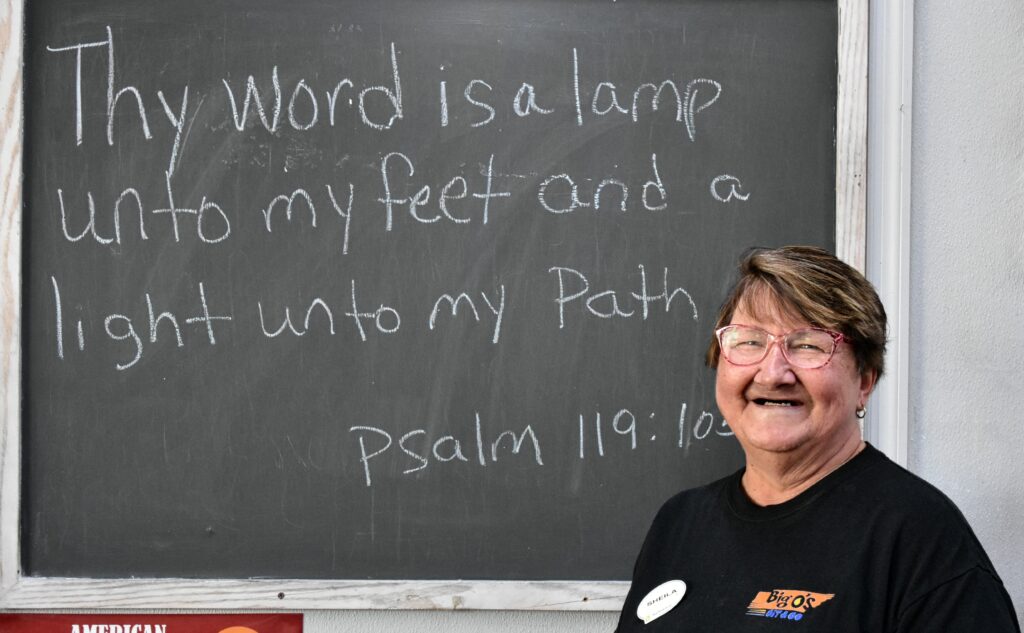 Thy Word is a lamp
unto my feet and a
light unto my Path
Psalm 119: 105
SHEILA
Big O's
GIT & GO
AMERICAN